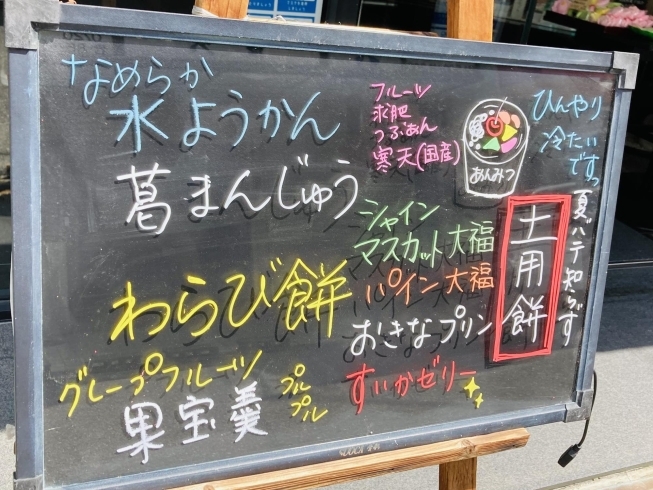 なめらか
水ようかん
葛まんじゅう
わらび餅
グレープフルーツ
果宝羹
プル
プル
フルーツ
求肥
つぶあん
寒天(国産)
あんみつ
ひんやり
冷たい
ですっ
シャイン
マスカット大福
パイン大福
おきなプリン
すいかゼリー
夏バテ知らず
土用餅